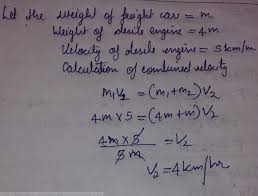 Let the weight of freight car = m
Weight of desile engine = 4m
Velocity of desile engine = 5km/m
Calculation of combined velocity
m₁V₂ = (m₁+m₂)V₂
4m×5 = (4m+m)V₂
4m×5 / 5m = V₂
V₂ = 4km/hr